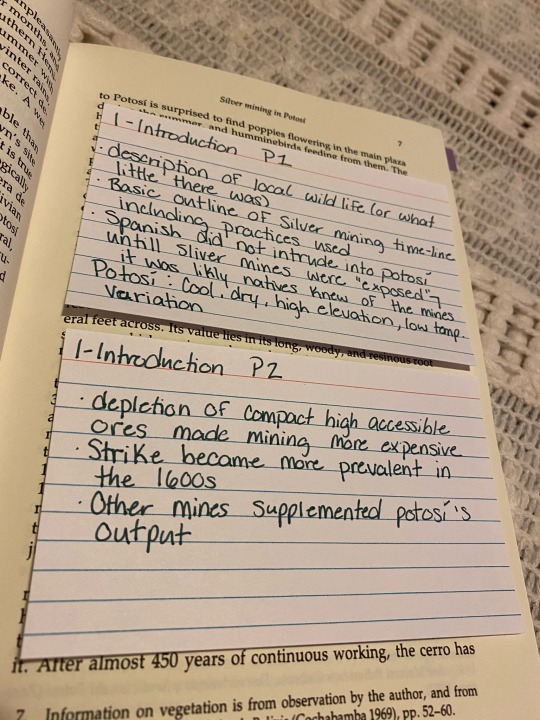 unpleasantly
months, an
uthern Hem
ummer with
winter rain
correct de
A wet
ble than
yn's site
t is true
ogically
era de
ivian
otosí
ral,
ru-
d
Silver mining in Potosí
7
to Potosí is surprised to find poppies flowering in the main plaza
the summer, and hummingbirds feeding from them. The
1-Introduction P1
· description of local wild life (or what
little there was)
· Basic outline of Silver mining time-line
including practices used
· Spanish did not intrude into potosí
untill sliver mines were "exposed" →
it was likly natives knew of the mines
Potosí: Cool, dry, high elevation, low temp.
variation
eral feet across. Its value lies in its long, woody, and resinous root
1-Introduction P2
· depletion of compact high accessible
ores made mining more expensive
· Strike became more prevalent in
the 1600s
· Other mines supplemented potosí's
output
it. After almost 450 years of continuous working, the cerro has
7 Information on vegetation is from observation by the author, and from
(Cochabamba 1969), pp. 52–60.